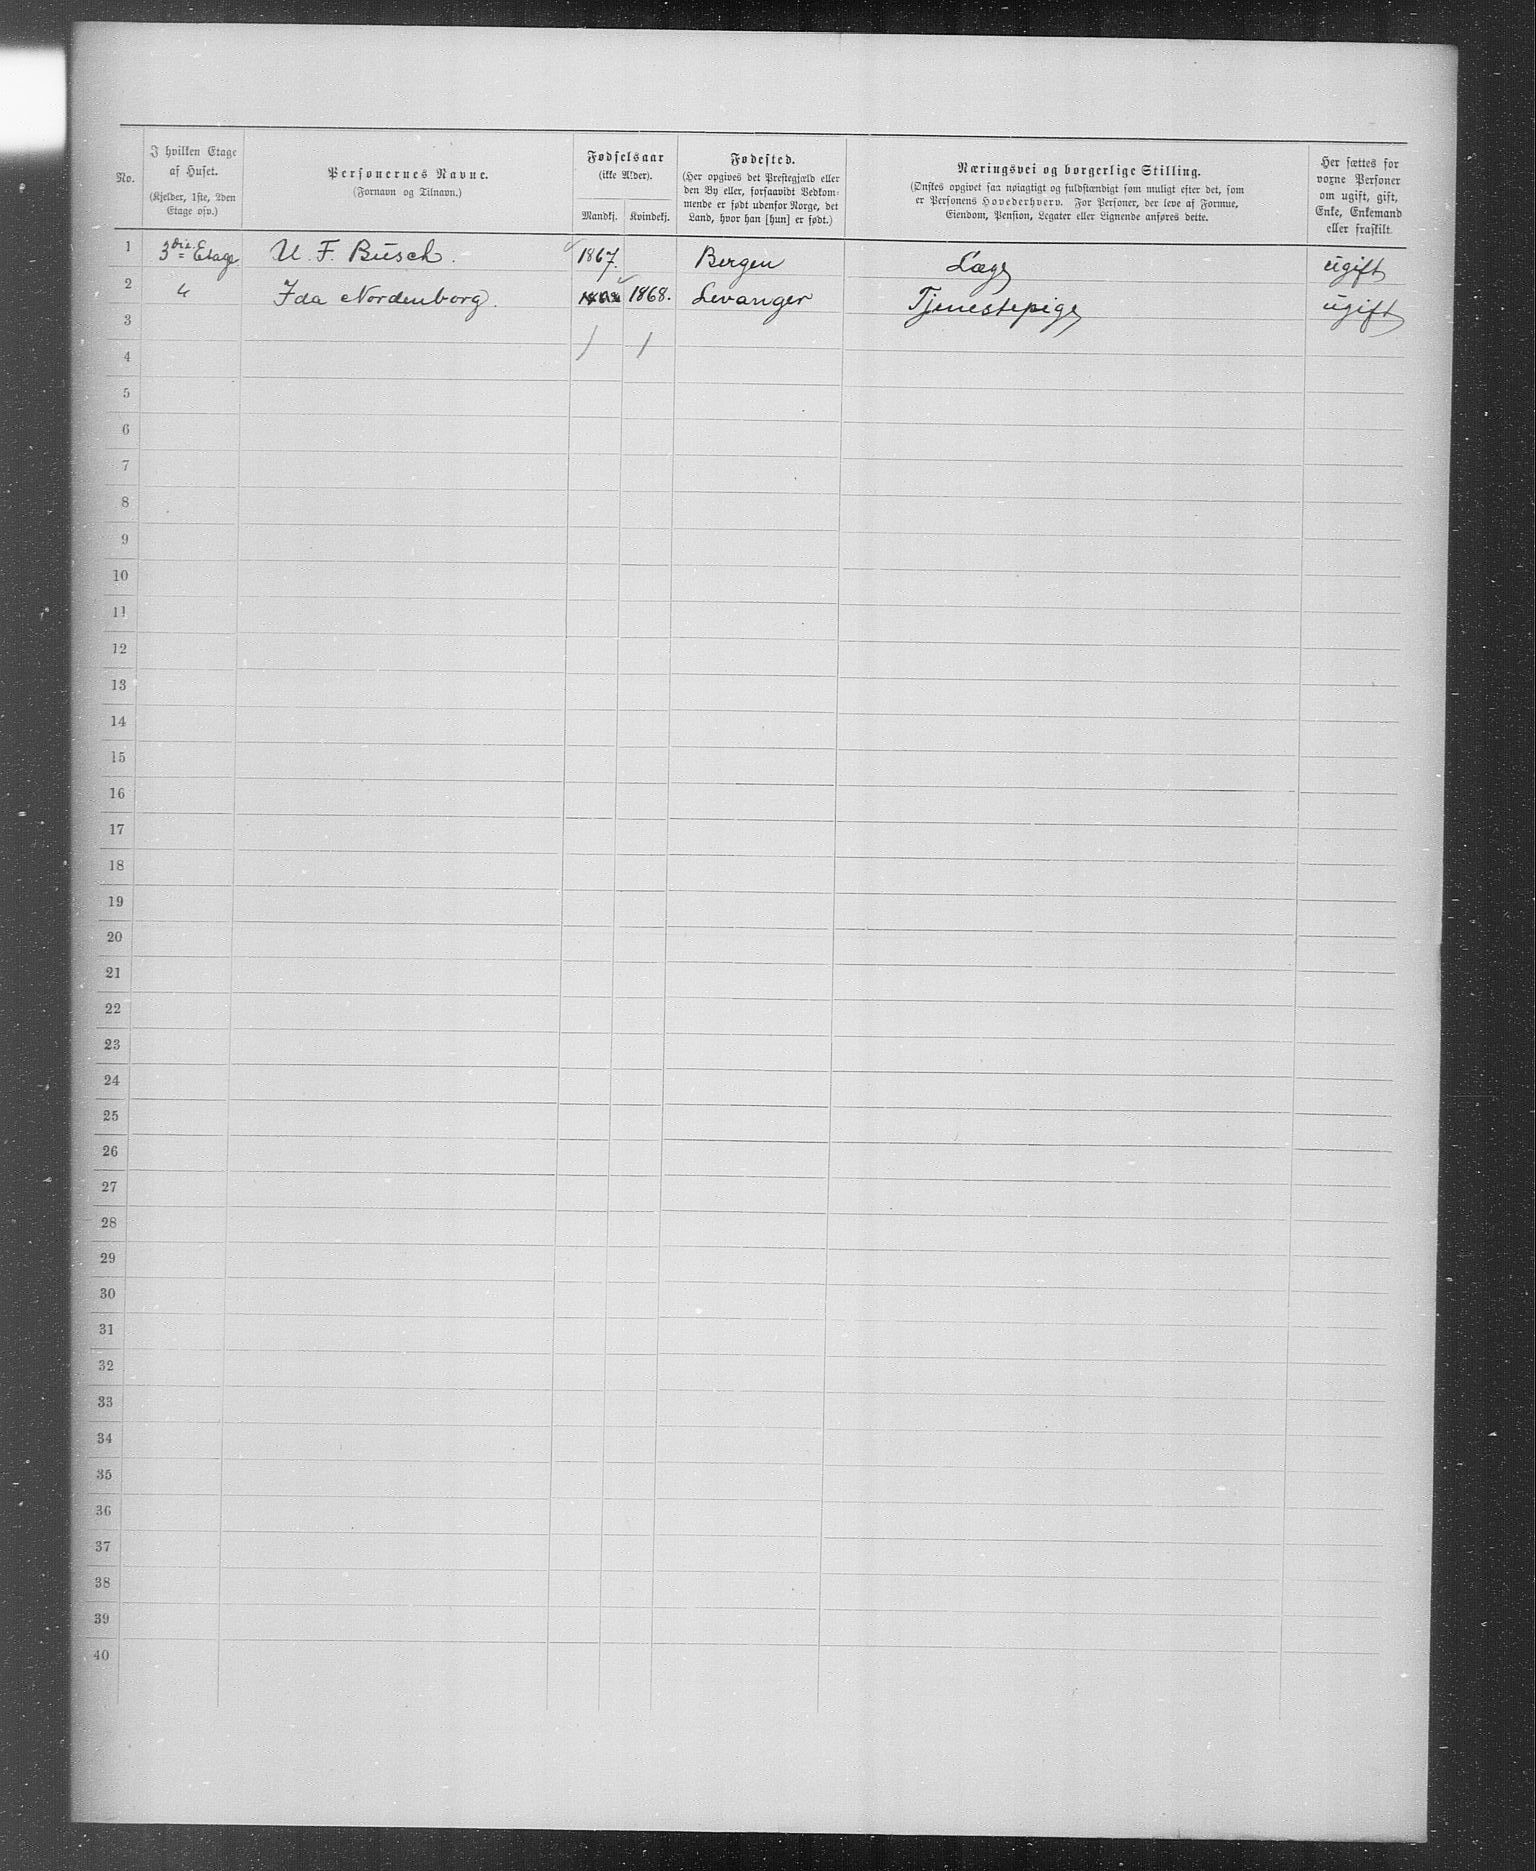 No.
I hvilken Etage
af Huset.
(Kjelder, 1ste, 2den
Etage osv.)
Personernes Navne.
(Fornavn og Tilnavn.)
Fødselsaar
(ikke Alder).
Mandkj. Kvindekj.
Fødested.
(Her opgives det Prestegjæld eller
den By eller, forsaavidt Vedkom-
mende er født udenfor Norge, det
Land, hvor han [hun] er født.)
Næringsvei og borgerlige Stilling.
(Ønskes opgivet saa nøiagtigt og fuldstændigt som muligt efter det, som
er Personens Hovederhverv. For Personer, der leve af Formue,
Eiendom, Pension, Legater eller Lignende anføres dette.
Her sættes for
voxne Personer
om ugift, gift,
Enke, Enkemand
eller fraskilt.
1 3die Etage U. F. Busch. 1867. Bergen Læge ugift
2 " Ida Nordenborg. 1868. Levanger Tjenestepige ugift
3
/ /
4
5
6
7
8
9
10
11
12
13
14
15
16
17
18
19
20
21
22
23
24
25
26
27
28
29
30
31
32
33
34
35
36
37
38
39
40